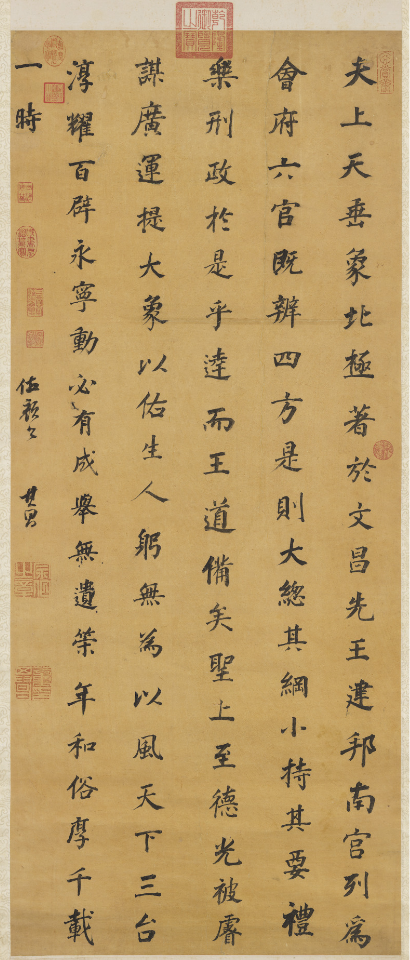 夫上天垂象北極著於文昌先王建邦南宮列為
會府六官既辨四方是則大總其綱小持其要禮
樂刑政於是乎達而王道備矣聖上至德光被睿
謀廣運提大象以佑生人躬無為以風天下三台
淳耀百辟永寧動必有成舉無遺策年和俗厚千載
一時
其昌